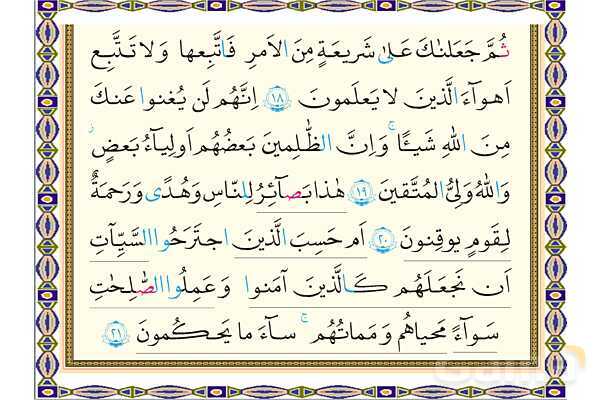 ثُمَّ جَعَلناكَ عَلىٰ شَريعَةٍ مِنَ الاَمرِ فَاتَّبِعها وَلا تَتَّبِع
اَهوآءَ الَّذينَ لا يَعلَمونَ ﴿١٨﴾ اِنَّهُم لَن يُغنوا عَنكَ
مِنَ اللهِ شَيئًا ۚ وَاِنَّ الظّٰلِمينَ بَعضُهُم اَولِيآءُ بَعضٍ ۖ
وَاللهُ وَلِيُّ المُتَّقينَ ﴿١٩﴾ هٰذا بَصآئِرُ لِلنّاسِ وَهُدًى وَرَحمَةٌ
لِقَومٍ يوقِنونَ ﴿٢٠﴾ اَم حَسِبَ الَّذينَ اجتَرَحُوا السَّيِّـٔاتِ
اَن نَجعَلَهُم كَالَّذينَ آمَنوا وَعَمِلُوا الصّٰلِحٰتِ
سَوآءً مَحياهُم وَمَماتُهُم ۚ سآءَ ما يَحكُمونَ ﴿٢١﴾